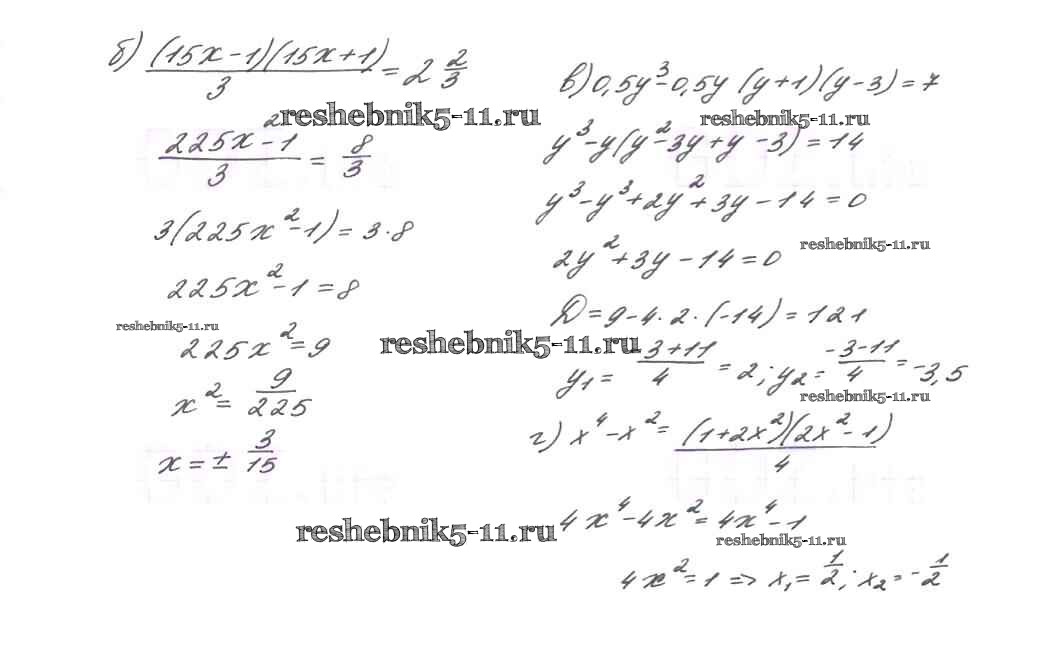 б) (15x-1)(15x+1)/3 = 2 2/3
reshebnik5-11.ru
225x²-1/3 = 8/3
3(225x²-1) = 3·8
225x²-1 = 8
reshebnik5-11.ru
225x² = 9
x² = 9/225
x = ± 3/15
в) 0,5y³-0,5y (y+1)(y-3) = 7
reshebnik5-11.ru
y³-y(y²-3y+y-3) = 14
y³-y³+2y²+3y-14 = 0
reshebnik5-11.ru
2y²+3y-14 = 0
D = 9-4·2·(-14) = 121
reshebnik5-11.ru
y₁ = -3+11/4 = 2; y₂ = -3-11/4 = -3,5
reshebnik5-11.ru
г) x⁴-x² = (1+2x²)(2x²-1)/4
4x⁴-4x² = 4x⁴-1
reshebnik5-11.ru
reshebnik5-11.ru
4x² = 1 => x₁ = 1/2; x₂ = -1/2